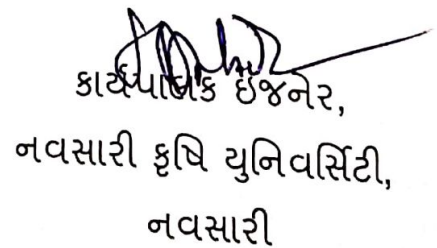 કાર્યપાલક ઇજનેર,
નવસારી કૃષિ યુનિવર્સિટી,
નવસારી